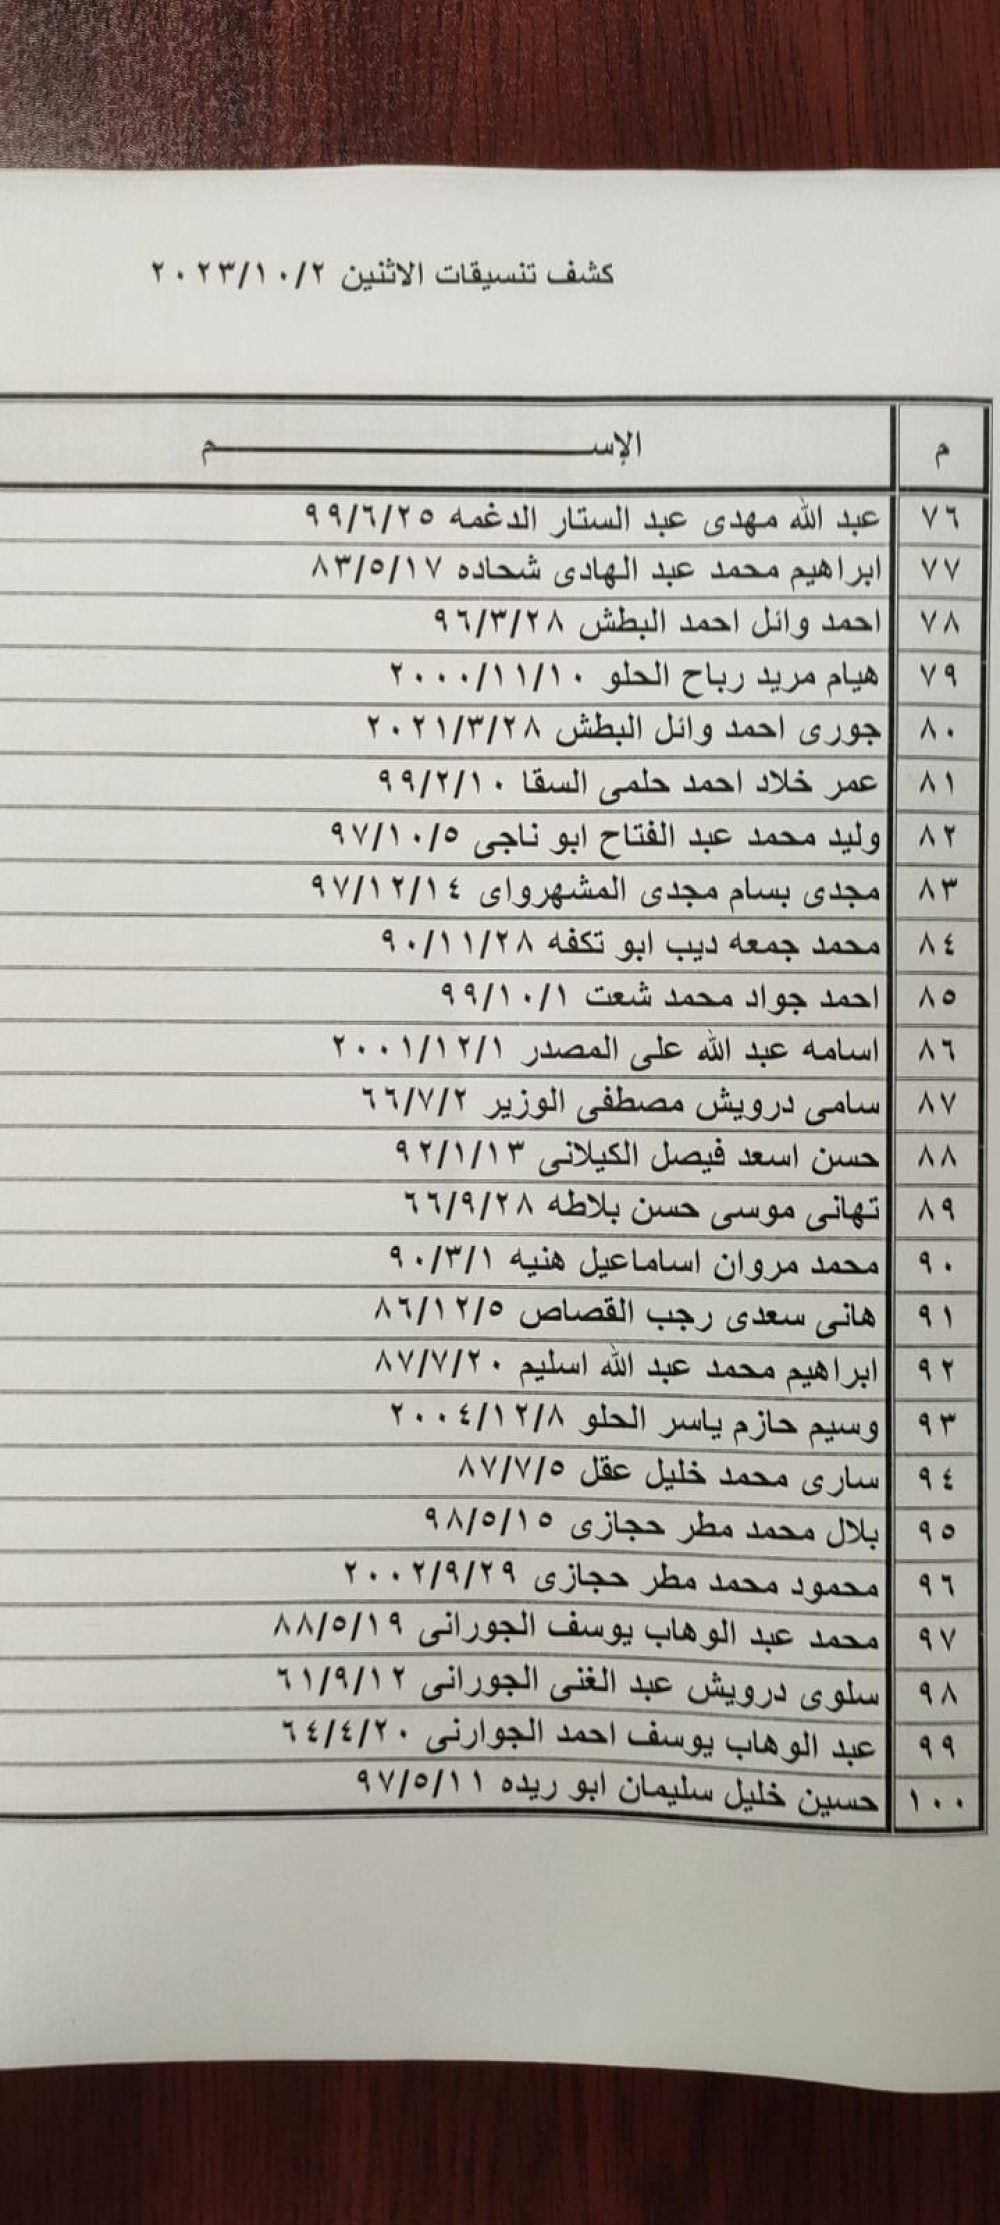 كشف تنسيقات الاثنين ٢٠٢٣/١٠/٢
م الإســـــــــم
٧٦ عبد الله مهدى عبد الستار الدغمه ٩٩/٦/٢٥
٧٧ ابراهيم محمد عبد الهادى شحاده ٨٣/٥/١٧
٧٨ احمد وائل احمد البطش ٩٦/٣/٢٨
٧٩ هيام مريد رباح الحلو ٢٠٠٠/١١/١٠
٨٠ جورى احمد وائل البطش ٢٠٢١/٣/٢٨
٨١ عمر خلاد احمد حلمى السقا ٩٩/٢/١٠
٨٢ وليد محمد عبد الفتاح ابو ناجى ٩٧/١٠/٥
٨٣ مجدى بسام مجدى المشهرواى ٩٧/١٢/١٤
٨٤ محمد جمعه ديب ابو تكفه ٩٠/١١/٢٨
٨٥ احمد جواد محمد شعت ٩٩/١٠/١
٨٦ اسامه عبد الله على المصدر ٢٠٠١/١٢/١
٨٧ سامى درويش مصطفى الوزير ٦٦/٧/٢
٨٨ حسن اسعد فيصل الكيلانى ٩٢/١/١٣
٨٩ تهانى موسى حسن بلاطه ٦٦/٩/٢٨
٩٠ محمد مروان اساماعيل هنيه ٩٠/٣/١
٩١ هانى سعدى رجب القصاص ٨٦/١٢/٥
٩٢ ابراهيم محمد عبد الله اسليم ٨٧/٧/٢٠
٩٣ وسيم حازم ياسر الحلو ٢٠٠٤/١٢/٨
٩٤ سارى محمد خليل عقل ٨٧/٧/٥
٩٥ بلال محمد مطر حجازى ٩٨/٥/١٥
٩٦ محمود محمد مطر حجازى ٢٠٠٢/٩/٢٩
٩٧ محمد عبد الوهاب يوسف الجورانى ٨٨/٥/١٩
٩٨ سلوى درويش عبد الغنى الجورانى ٦١/٩/١٢
٩٩ عبد الوهاب يوسف احمد الجوارنى ٦٤/٤/٢٠
١٠٠ حسين خليل سليمان ابو ريده ٩٧/٥/١١